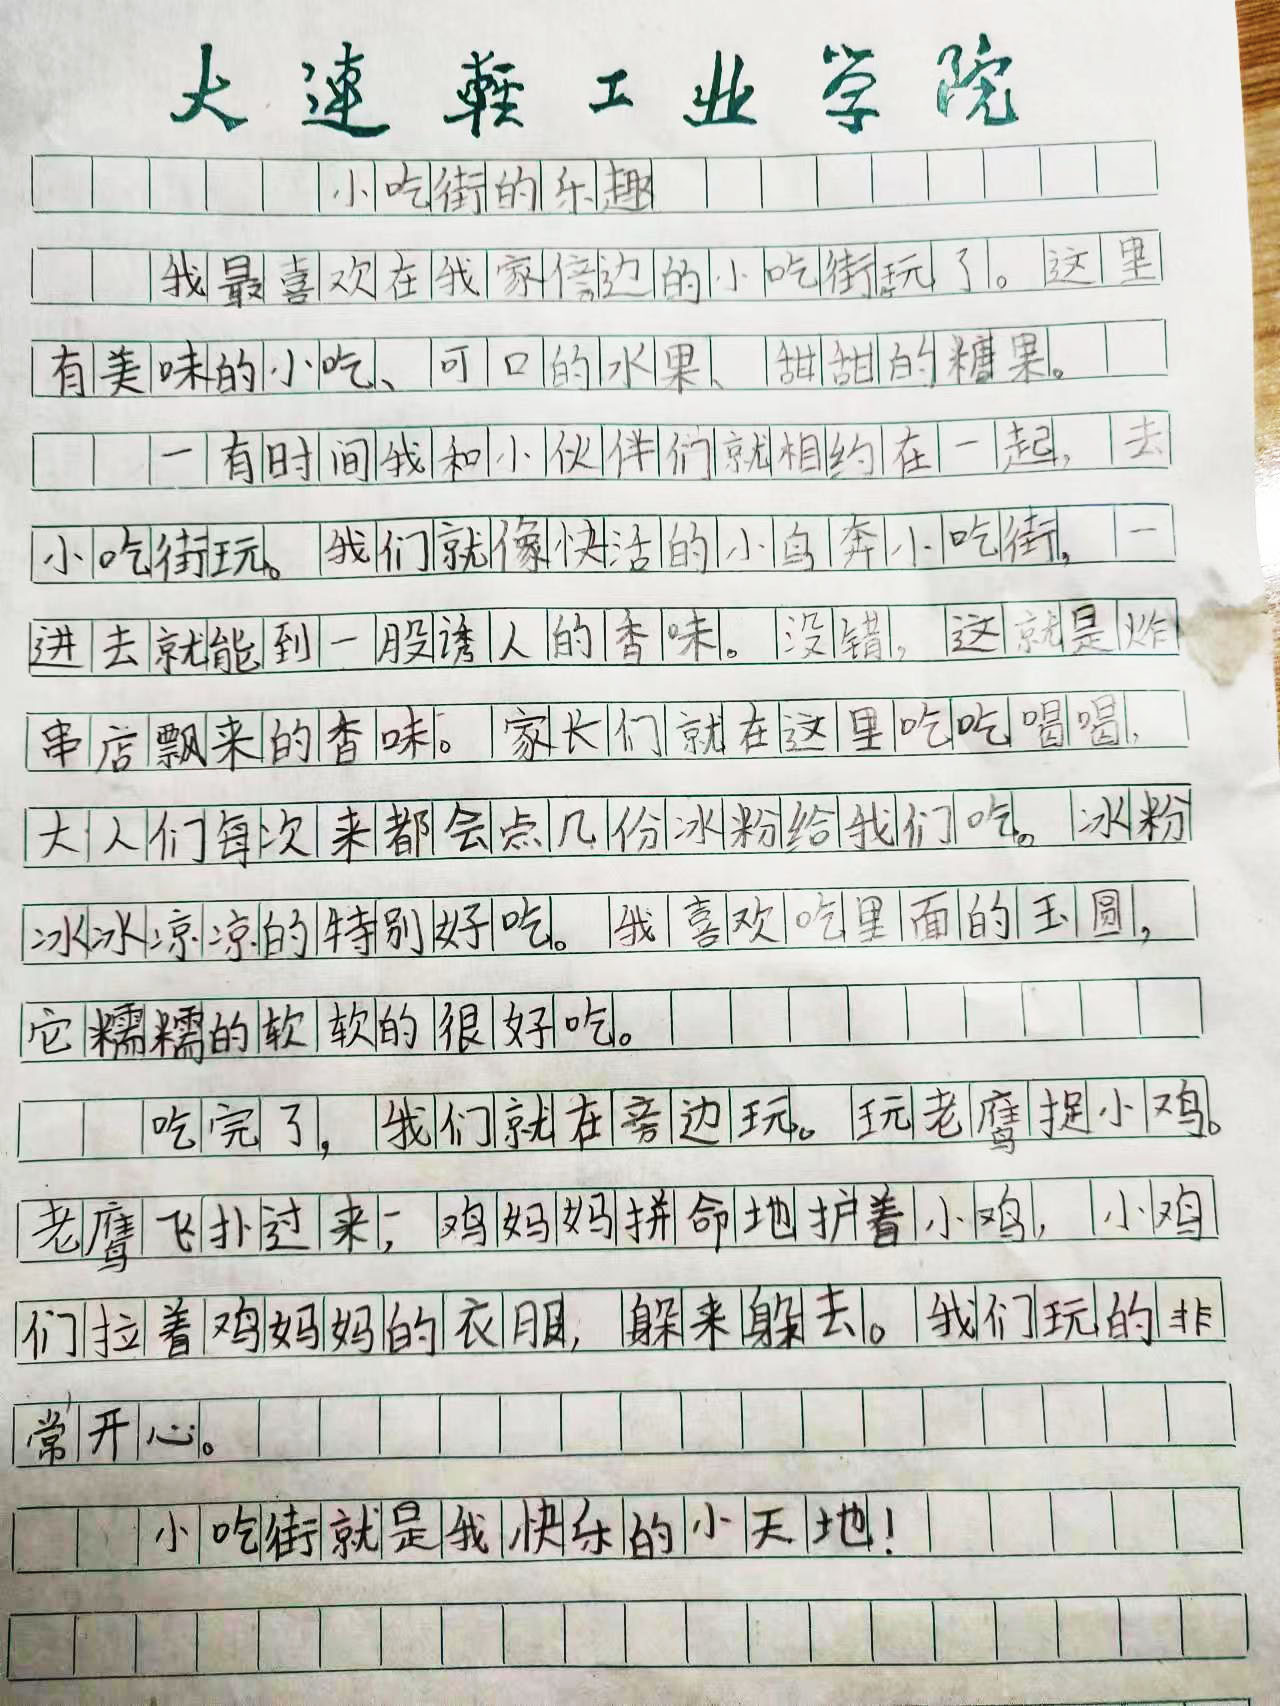 大連輕工业学院
小吃街的乐趣
我最喜欢在我家傍边的小吃街玩了。这里
有美味的小吃、可口的水果、甜甜的糖果。
一有时间我和小伙伴们就相约在一起，去
小吃街玩。我们就像快活的小鸟奔小吃街，一
进去就能到一股诱人的香味。没错，这就是炸
串店飘来的香味。家长们就在这里吃吃喝喝，
大人们每次来都会点几份冰粉给我们吃。冰粉
冰冰凉凉的特别好吃。我喜欢吃里面的玉圆，
它糯糯的软软的很好吃。
吃完了，我们就在旁边玩。玩老鹰捉小鸡。
老鹰飞扑过来，鸡妈妈拼命地护着小鸡，小鸡
们拉着鸡妈妈的衣服，躲来躲去。我们玩的非
常开心。
小吃街就是我快乐的小天地！